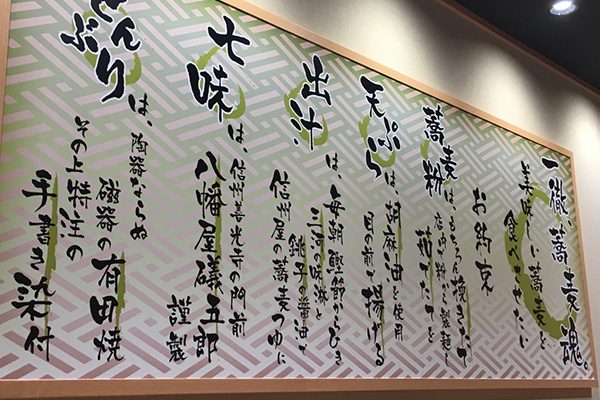 一徹蕎麦魂。
美味しい蕎麦を
食べさせたい
お約束
蕎麦粉は、もちろん挽きたて
店内で粉から製麺し
茹でたてを
天ぷらは、胡麻油を使用
目の前で揚げる
出汁は、毎朝鰹節からひき
三河の味醂と
銚子の醤油で
信州屋の蕎麦つゆに
七味は、信州善光寺の門前
八幡屋礒五郎
謹製
どんぶりは、陶器ならぬ
磁器の有田焼
その上特注の
手書き染付